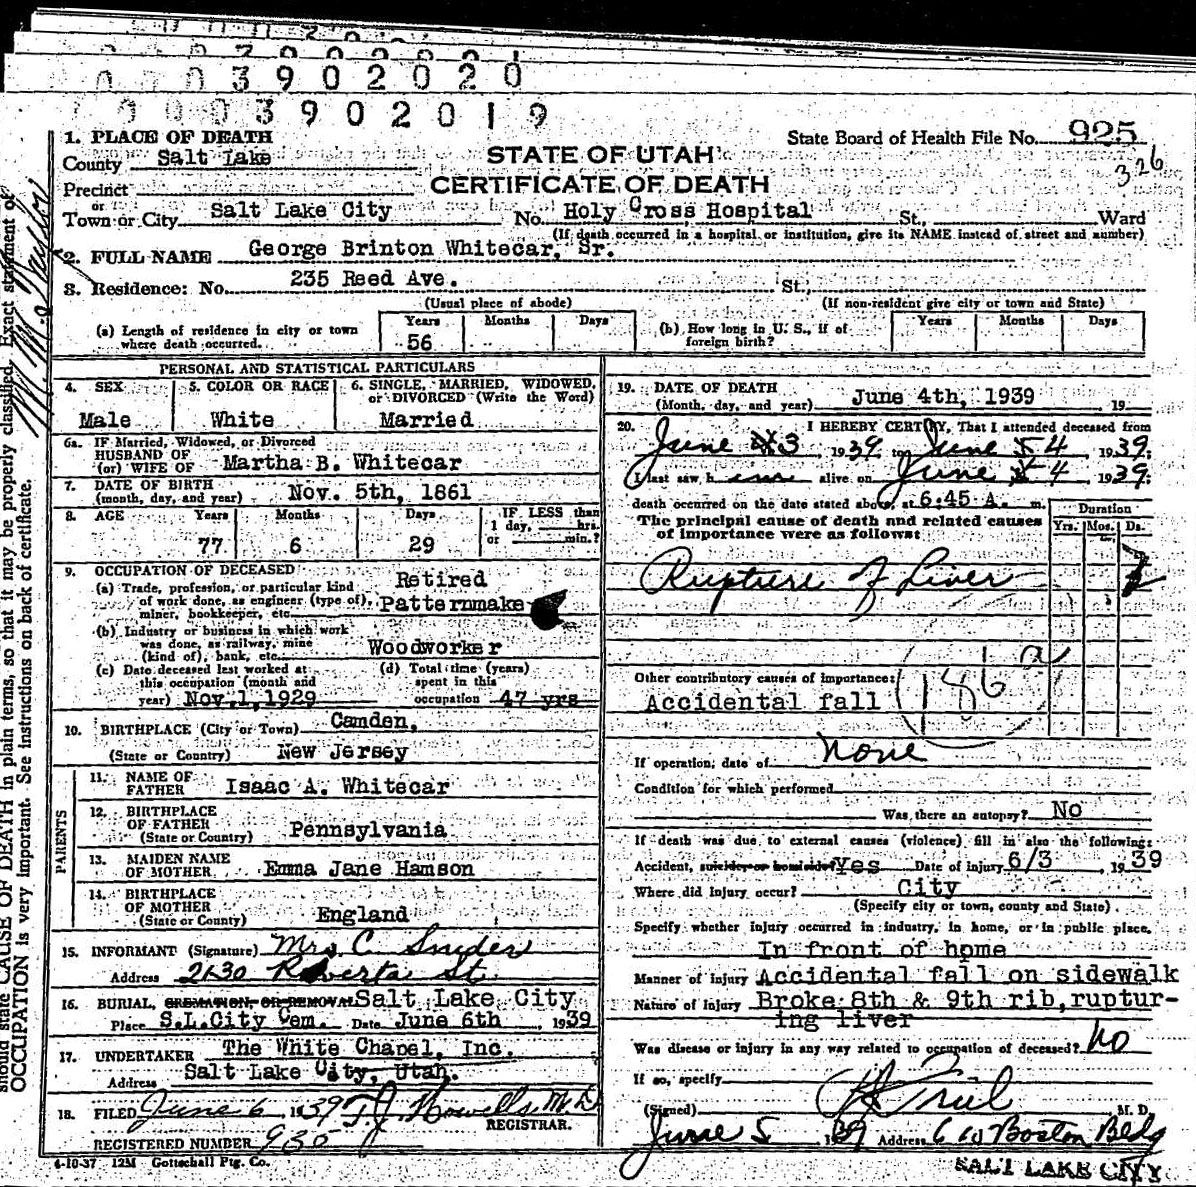 0 0 0 3 9 0 2 0 2 0
0 0 0 3 9 0 2 0 1 9
1. PLACE OF DEATH
State Board of Health File No. 925
County Salt Lake
STATE OF UTAH
326
Precinct
CERTIFICATE OF DEATH
or
Town or City Salt Lake City No. Holy Cross Hospital St., Ward
(If death occurred in a hospital or institution, give its NAME instead of street and number)
2. FULL NAME George Brinton Whitecar, Sr.
3. Residence: No. 235 Reed Ave. St.,
(Usual place of abode) (If non-resident give city or town and State)
(a) Length of residence in city or town where death occurred. Years 56 Months Days
(b) How long in U. S., if of foreign birth? Years Months Days
PERSONAL AND STATISTICAL PARTICULARS
4. SEX
Male
5. COLOR OR RACE
White
6. SINGLE, MARRIED, WIDOWED,
or DIVORCED (Write the Word)
Married
6a. IF Married, Widowed, or Divorced
HUSBAND OF
(or) WIFE OF Martha B. Whitecar
7. DATE OF BIRTH
(month, day, and year) Nov. 5th, 1861
8. AGE Years Months Days IF LESS than
1 day, hrs.
or min.?
77 6 29
9. OCCUPATION OF DECEASED
(a) Trade, profession, or particular kind
of work done, as engineer (type of),
miner, bookkeeper, etc. Retired
Patternmake
(b) Industry or business in which work
was done, as railway, mine
(kind of), bank, etc. Woodworker
(c) Date deceased last worked at
this occupation (month and
year) Nov.1,1929
(d) Total time (years)
spent in this
occupation 47 yrs
10. BIRTHPLACE (City or Town) Camden,
(State or Country) New Jersey
PARENTS
11. NAME OF
FATHER Isaac A. Whitecar
12. BIRTHPLACE
OF FATHER
(State or Country) Pennsylvania
13. MAIDEN NAME
OF MOTHER Emma Jane Hamson
14. BIRTHPLACE
OF MOTHER
(State or Country) England
15. INFORMANT (Signature) Mrs. C. Snyder
Address 2130 Roberta St.
16. BURIAL, CREMATION, OR REMOVAL Salt Lake City
Place S.L.City Cem. Date June 6th 1939
17. UNDERTAKER The White Chapel, Inc.
Address Salt Lake City, Utah.
18. FILED June 6, 1939 T.J. Howells, M.D.
REGISTRAR.
REGISTERED NUMBER 935
4-10-37 12M Gottschall Ptg. Co.
19. DATE OF DEATH
(Month, day, and year) June 4th, 1939 19
20. I HEREBY CERTIFY, That I attended deceased from
June 3 1939 to June 4 1939;
I last saw him alive on June 4 1939;
death occurred on the date stated above, at 6:45 A. m.
The principal cause of death and related causes
of importance were as follows:
Duration
Yrs. Mos. Ds.
Rupture of Liver
Other contributory causes of importance:
Accidental fall
186a
If operation, date of None
Condition for which performed
Was there an autopsy? No
If death was due to external causes (violence) fill in also the following:
Accident, suicide, or homicide? Yes Date of injury 6/3, 1939
Where did injury occur? City
(Specify city or town, county and State)
Specify whether injury occurred in industry, in home, or in public place.
In front of home
Manner of injury Accidental fall on sidewalk
Nature of injury Broke 8th & 9th rib, ruptur-
ing liver
Was disease or injury in any way related to occupation of deceased? No
If so, specify
(Signed) M. D.
June 5 1939 Address 610 Boston Bldg
SALT LAKE CITY
should state CAUSE OF DEATH in plain terms, so that it may be properly classified. Exact statement of
OCCUPATION is very important. See instructions on back of certificate.